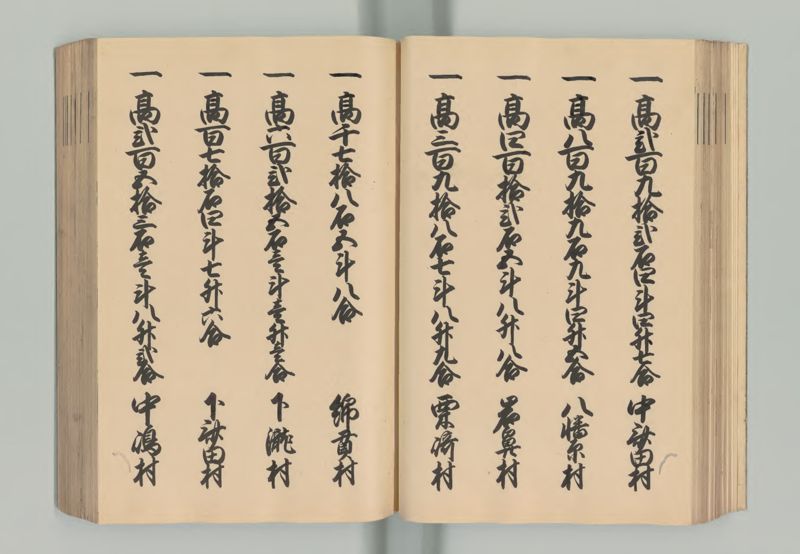 一高弐百九拾弐石四斗四升七合 中斎田村
一高八百九拾九石九斗四升五合 八幡原村
一高四百拾弐石五斗八升八合 岩鼻村
一高三百九拾八石七斗八升九合 栗崎村
一高千七拾八石五斗八合 綿貫村
一高六百弐拾五石壱斗壱升壱合 下滝村
一高百七拾石四斗七升六合 下斎田村
一高弐百五拾三石壱斗八升弐合 中嶋村